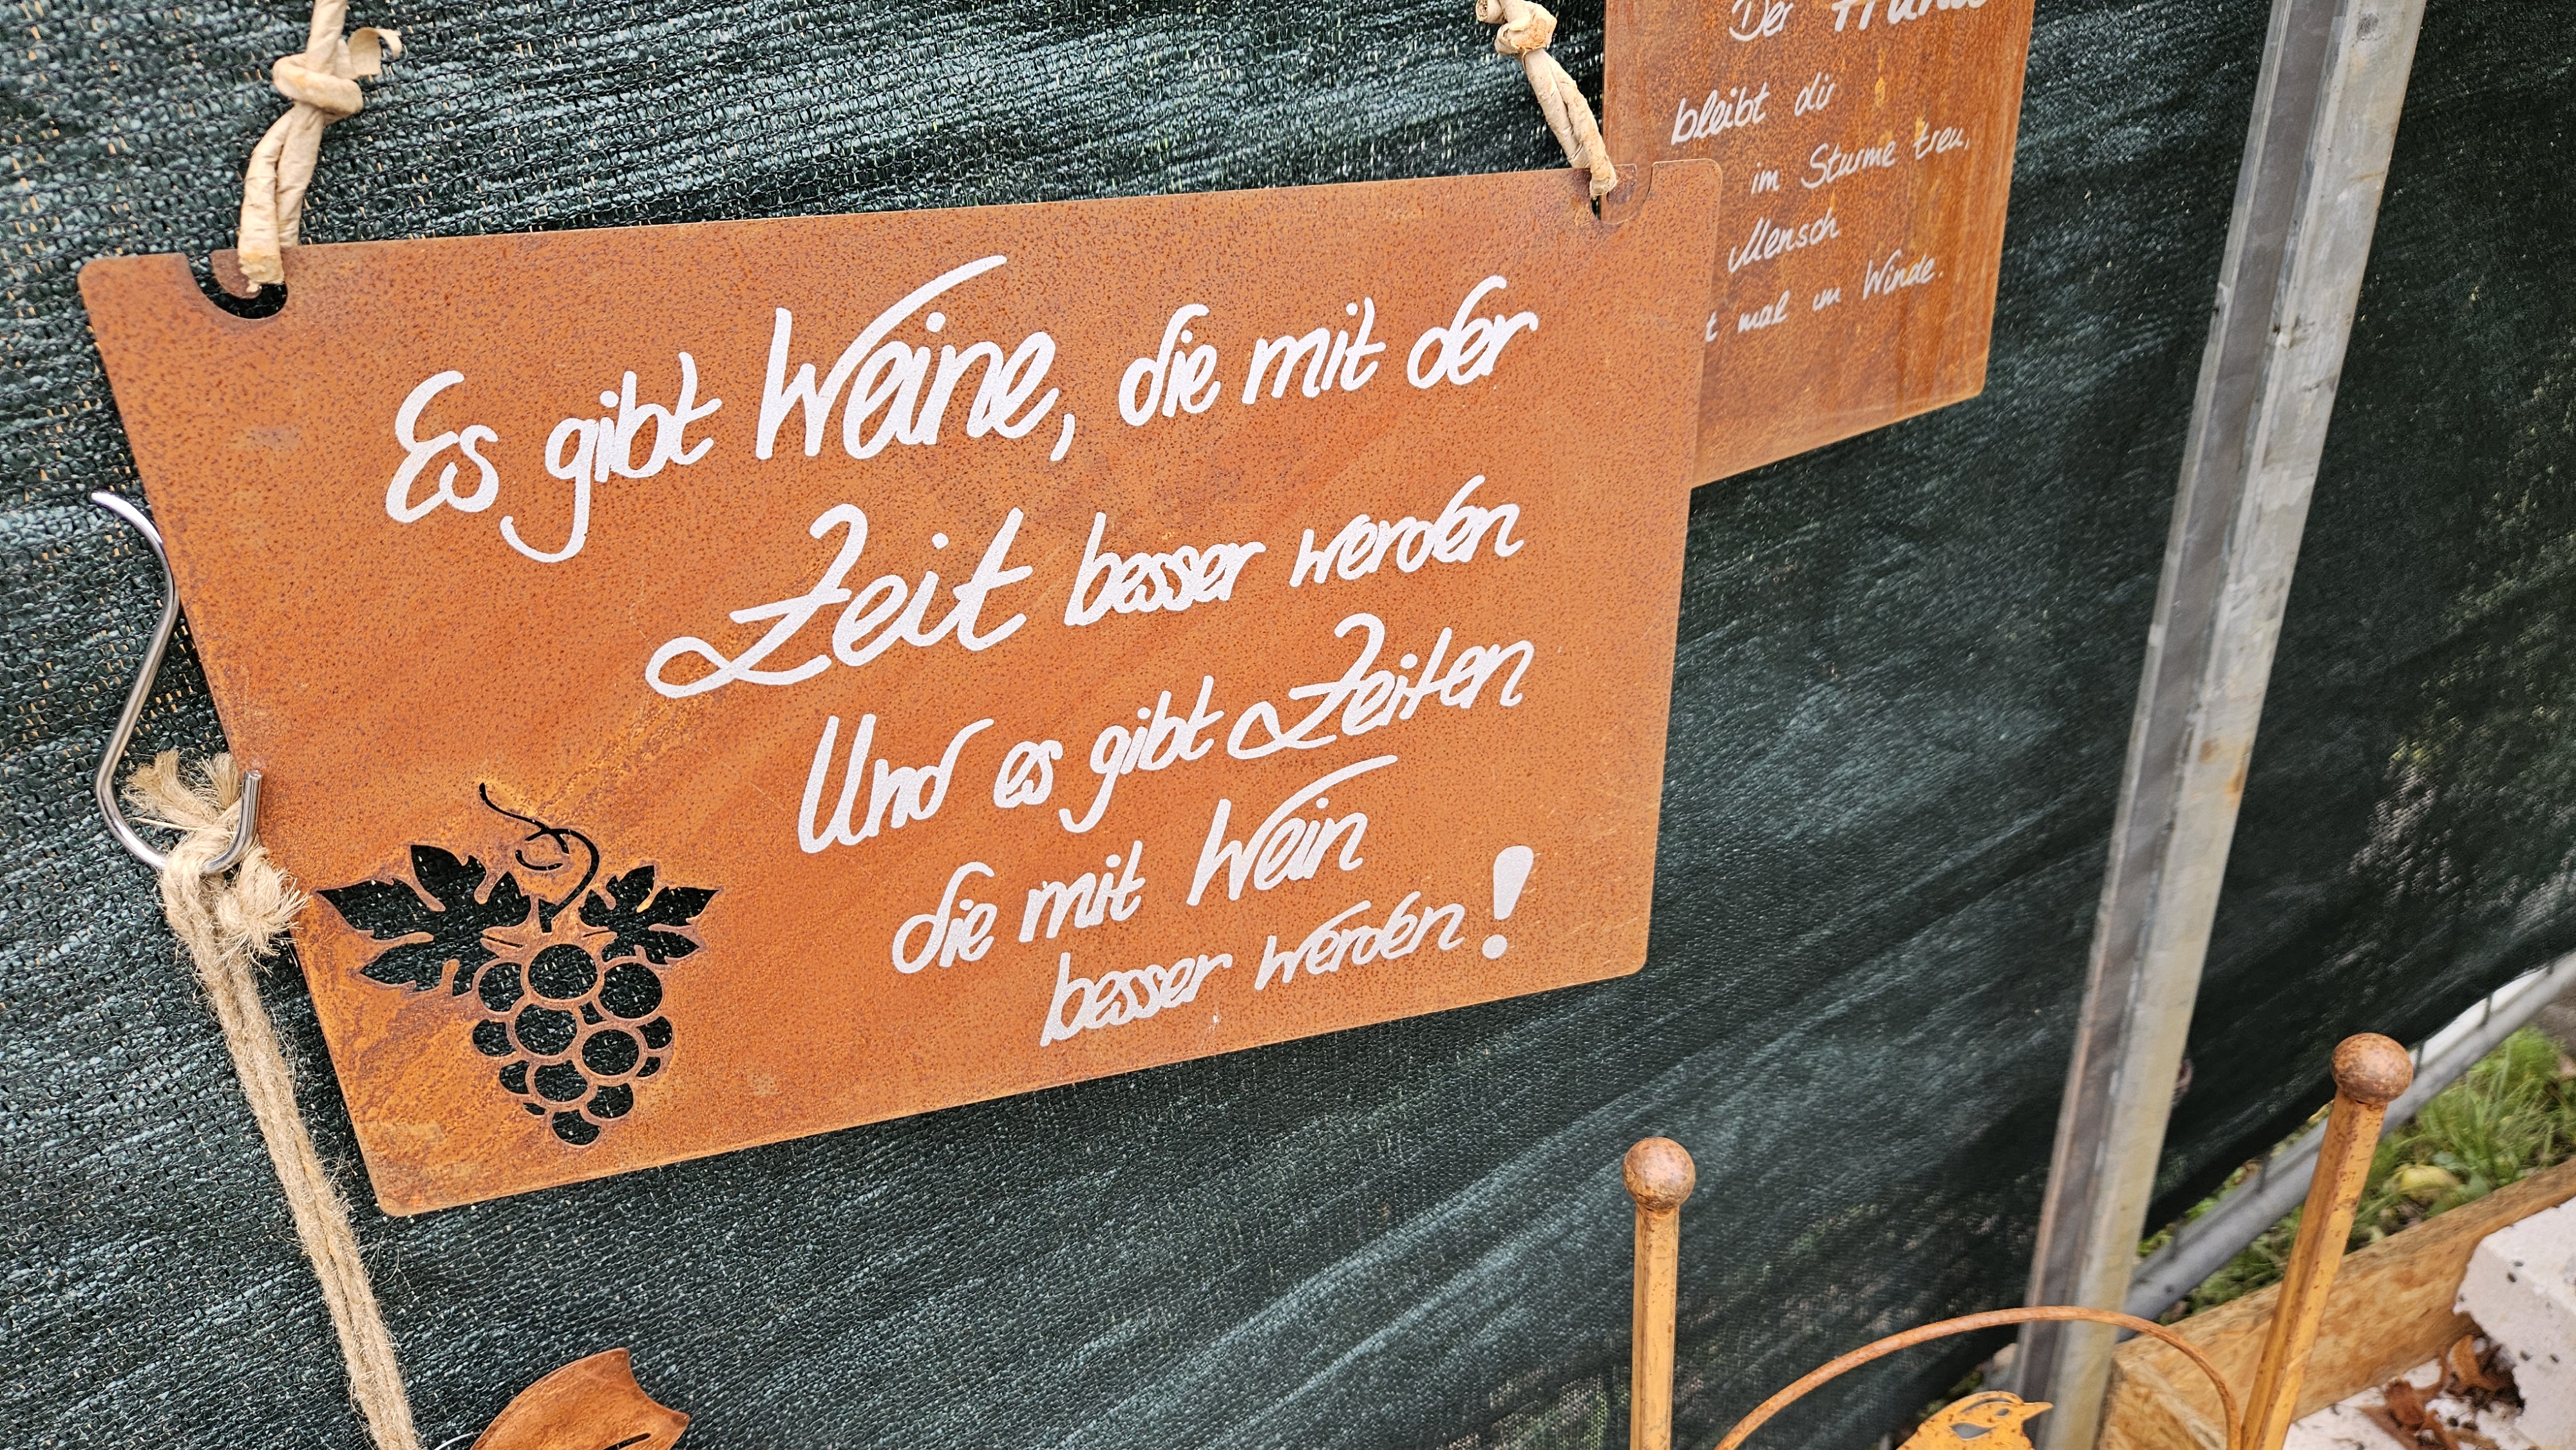 Es gibt Weine, die mit der
Zeit besser werden
Und es gibt Zeiten
die mit Wein
besser werden!
Der
bleibt dir
im Sturme treu,
Mensch
mal im Winde.